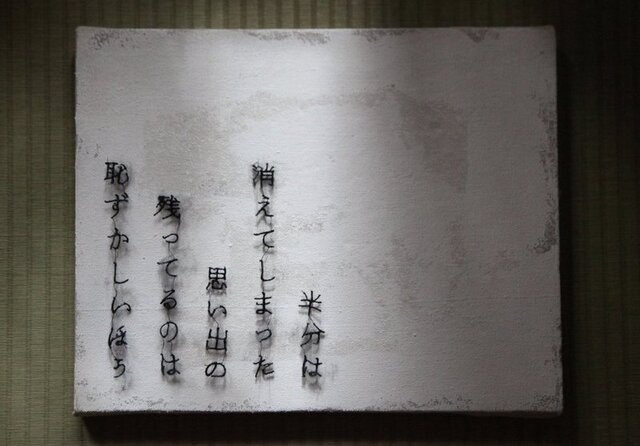 半分は
消えてしまった
思い出の
残ってるのは
恥ずかしいほう